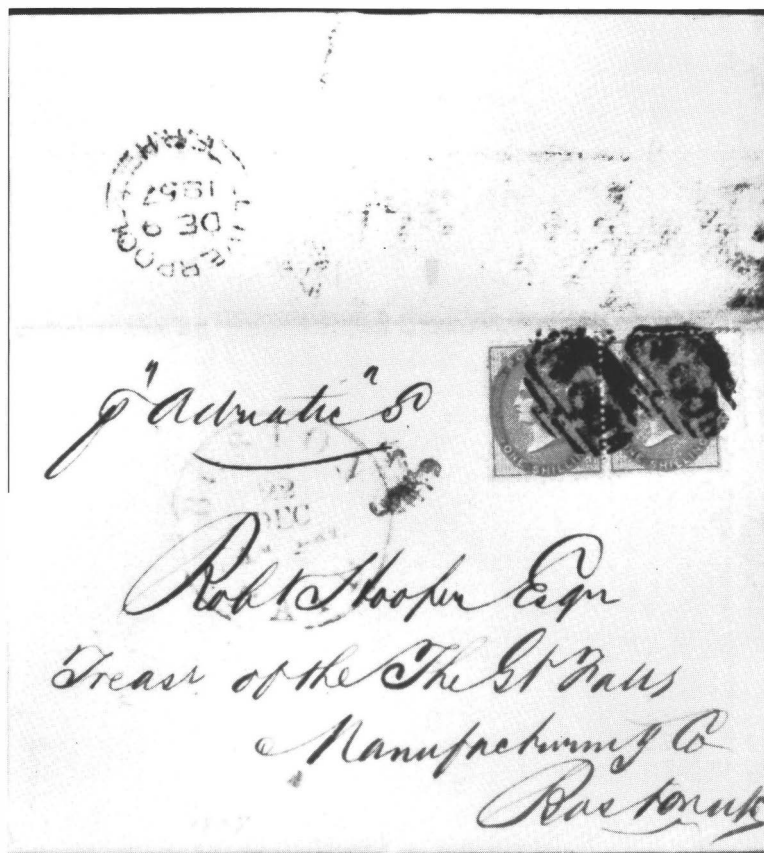 LIVERPOOL
DE 9
1857
p "Adriatic" S
ONE SHILLING ONE SHILLING
BOSTON
22
DEC
Robt Hooper Esqr
Treasr of the The Gt Falls
Manufacturing Co
Boston